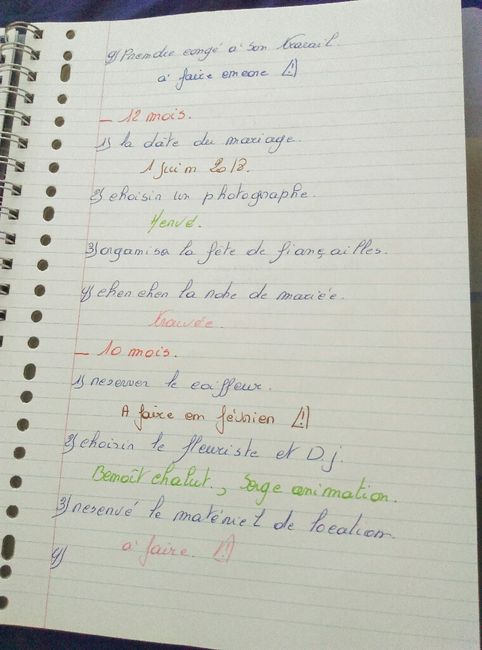 9) Prendre congé à son travail.
à faire encore ⚠
- 12 mois.
1) la date du mariage.
1 juin 2013.
2) choisir un photographe.
Hervé.
3) organisa la fête de fiançailles.
4) chercher la robe de mariée.
trouvée.
- 10 mois.
1) reserver le coiffeur.
A faire en février ⚠
2) choisir le fleuriste et D.j.
Benoît chalut., Serge animation.
3) reservé le matériel de location.
à faire. ⚠
4)